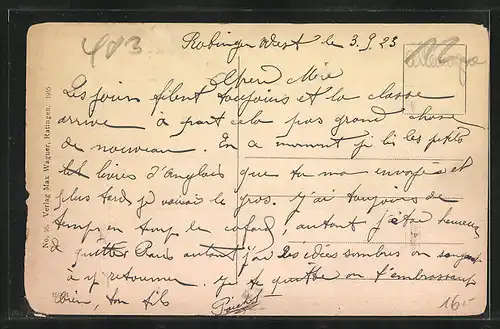 483
Ratingen West le 3.9.23
Allemagne
Chère Mère
Les jours filent toujours et la classe
arrive à part cela pas grand chose
de nouveau. En ce moment je lis les petits
livres d'Anglais que tu m'a envoyé et
plus tard je verrai le gros. J'ai toujours de
temps en temps le cafard, autant j'étai heureux
de quitter Paris autant j'ai des idées sombres en songeant
à y retourner. Je te quitte en t'embrassant
bien, ton fils
16-
No. 16. Verlag Max Wagner, Ratingen. 1905